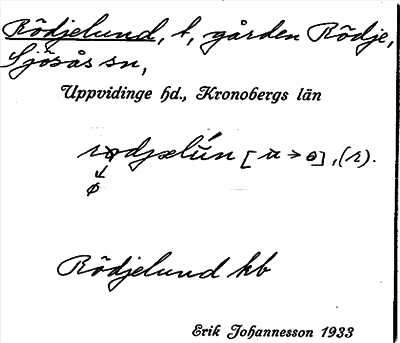 Rödjelund, t, gården Rödje,
Sjösås sn,
Uppvidinge hd., Kronobergs län
Rödjelund kb
Erik Johannesson 1933